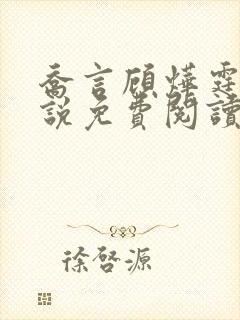 喬言顧燁霆
説免費閱讀
徐啓源